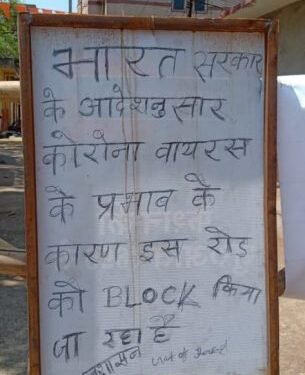 भारत सरकार
के आदेशनुसार
कोरोना वायरस
के प्रभाव के
कारण इस रोड
को BLOCK किया
जा रहा है